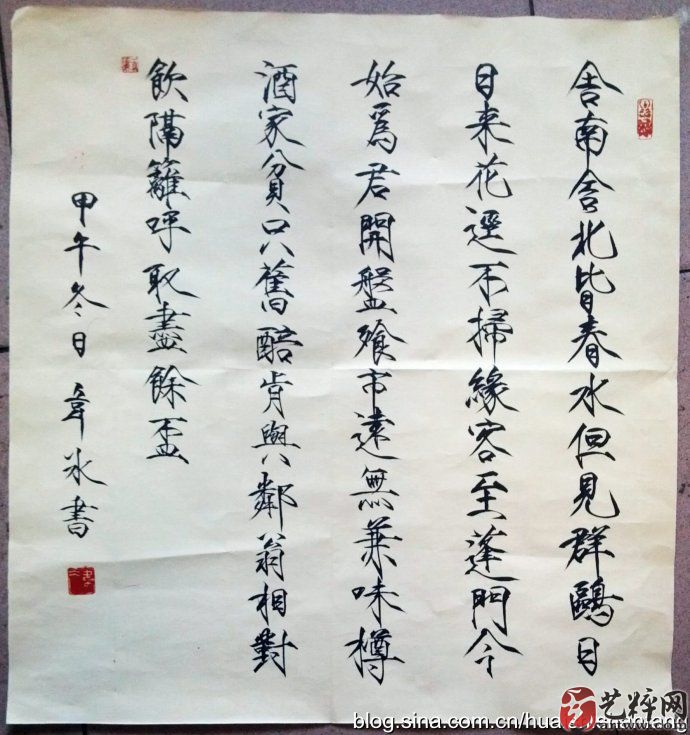 舍南舍北皆春水但見群鷗日
日来花逕不掃緣客至蓬門今
始爲君開盤飧市遠無兼味樽
酒家貧只舊醅肯與鄰翁相對
飲隔籬呼取盡餘盃
甲午冬日 韋冰書
艺粹网